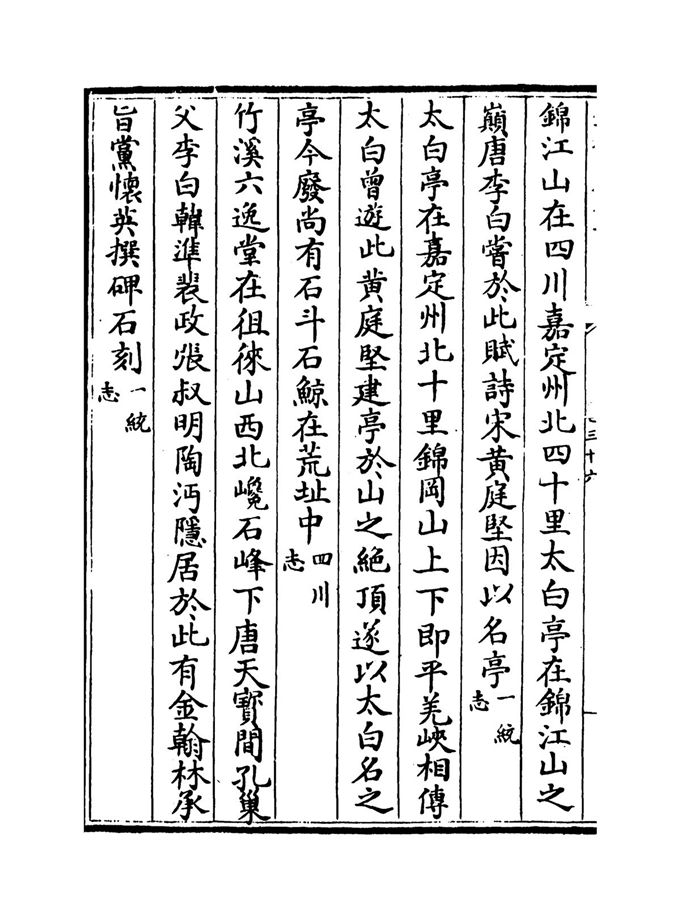 錦江山在四川嘉定州北四十里太白亭在錦江山之
巔唐李白嘗於此賦詩宋黄庭堅因以名亭一統志
太白亭在嘉定州北十里錦岡山上下即平羌峽相傳
太白曾遊此黄庭堅建亭於山之絶頂遂以太白名之
亭今廢尚有石斗石鯨在荒址中四川志
竹溪六逸堂在徂徠山西北巉石峰下唐天寳間孔巢
父李白韓準裴政張叔明陶沔隱居於此有金翰林承
旨黨懷英撰碑石刻一統志